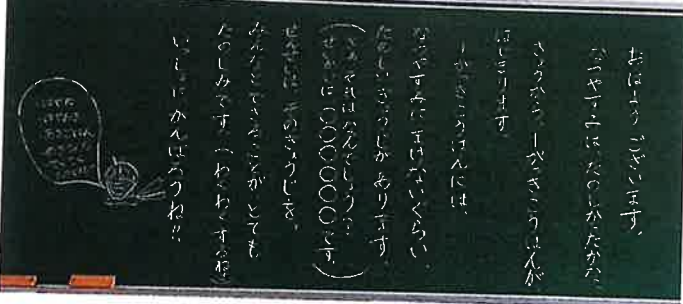 おはよう ございます。
なつやすみは たのしかったかな?
きょうから、1がっきこうはんが
はじまります。
1がっきこうはんには、
なつやすみに まけないくらい、
たのしい ぎょうじが あります。
(さあ、それはなんでしょう?
せいかいは ○○○○○○です。)
せんせいは、そのぎょうじを、
みんなとできることが、とても
たのしみです。(わくわくするね)
いっしょに がんばろうね!!